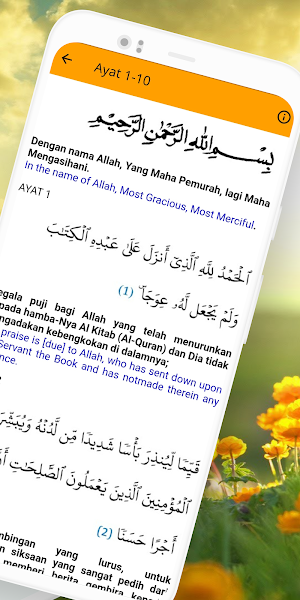 Ayat 1-10
بِسْمِ اللَّهِ الرَّحْمَٰنِ الرَّحِيمِ
Dengan nama Allah, Yang Maha Pemurah, lagi Maha
Mengasihani.
In the name of Allah, Most Gracious, Most Merciful.
AYAT 1
الْحَمْدُ لِلَّهِ الَّذِي أَنزَلَ عَلَىٰ عَبْدِهِ الْكِتَابَ
وَلَمْ يَجْعَل لَّهُ عِوَجًا (1)
egala puji bagi Allah yang telah menurunkan
pada hamba-Nya Al Kitab (Al-Quran) dan Dia tidak
ngadakan kebengkokan di dalamnya;
praise is [due] to Allah, who has sent down upon
Servant the Book and has notmade therein any
nce.
قَيِّمًا لِّيُنذِرَ بَأْسًا شَدِيدًا مِّن لَّدُنْهُ وَيُبَشِّرَ
الْمُؤْمِنِينَ الَّذِينَ يَعْمَلُونَ الصَّالِحَاتِ أَنَّ
أَجْرًا حَسَنًا (2)
mbingan yang lurus, untuk
siksaan yang sangat pedih dari
memberi berita gembira